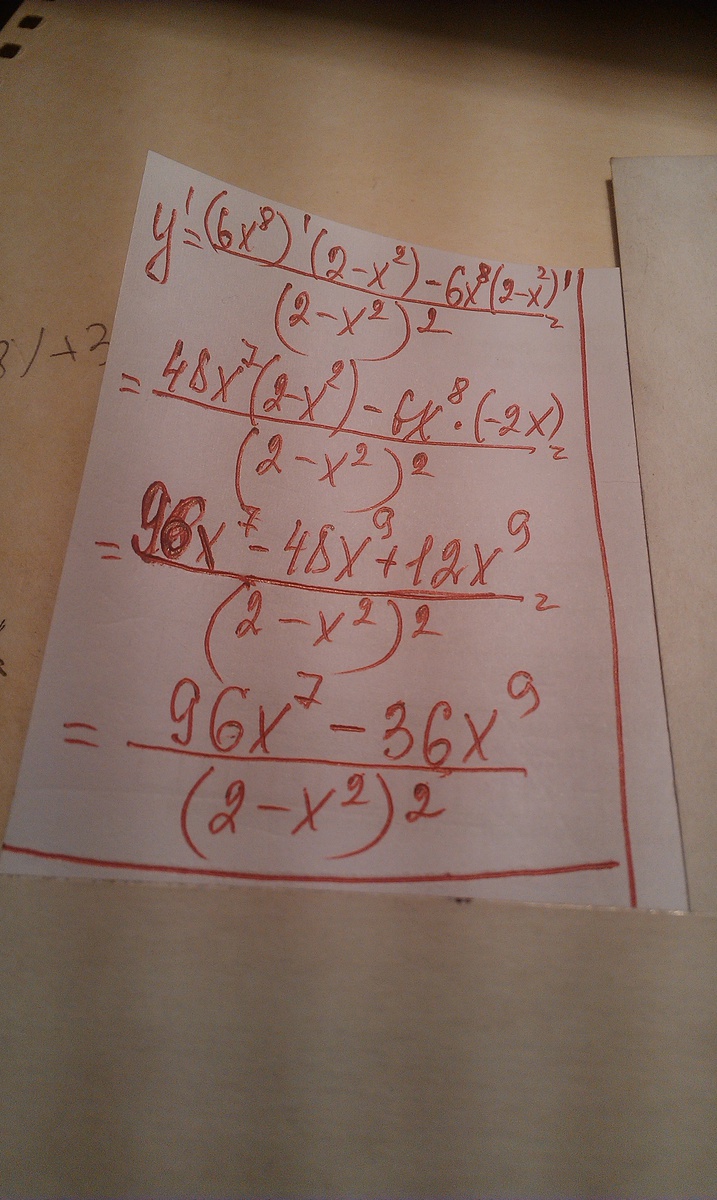 y'=(6x⁸)'(2-x²)-6x⁸(2-x²)' =
(2-x²)²
= 48x⁷(2-x²)-6x⁸·(-2x) =
(2-x²)²
= 96x⁷-48x⁹+12x⁹ =
(2-x²)²
= 96x⁷-36x⁹
(2-x²)²